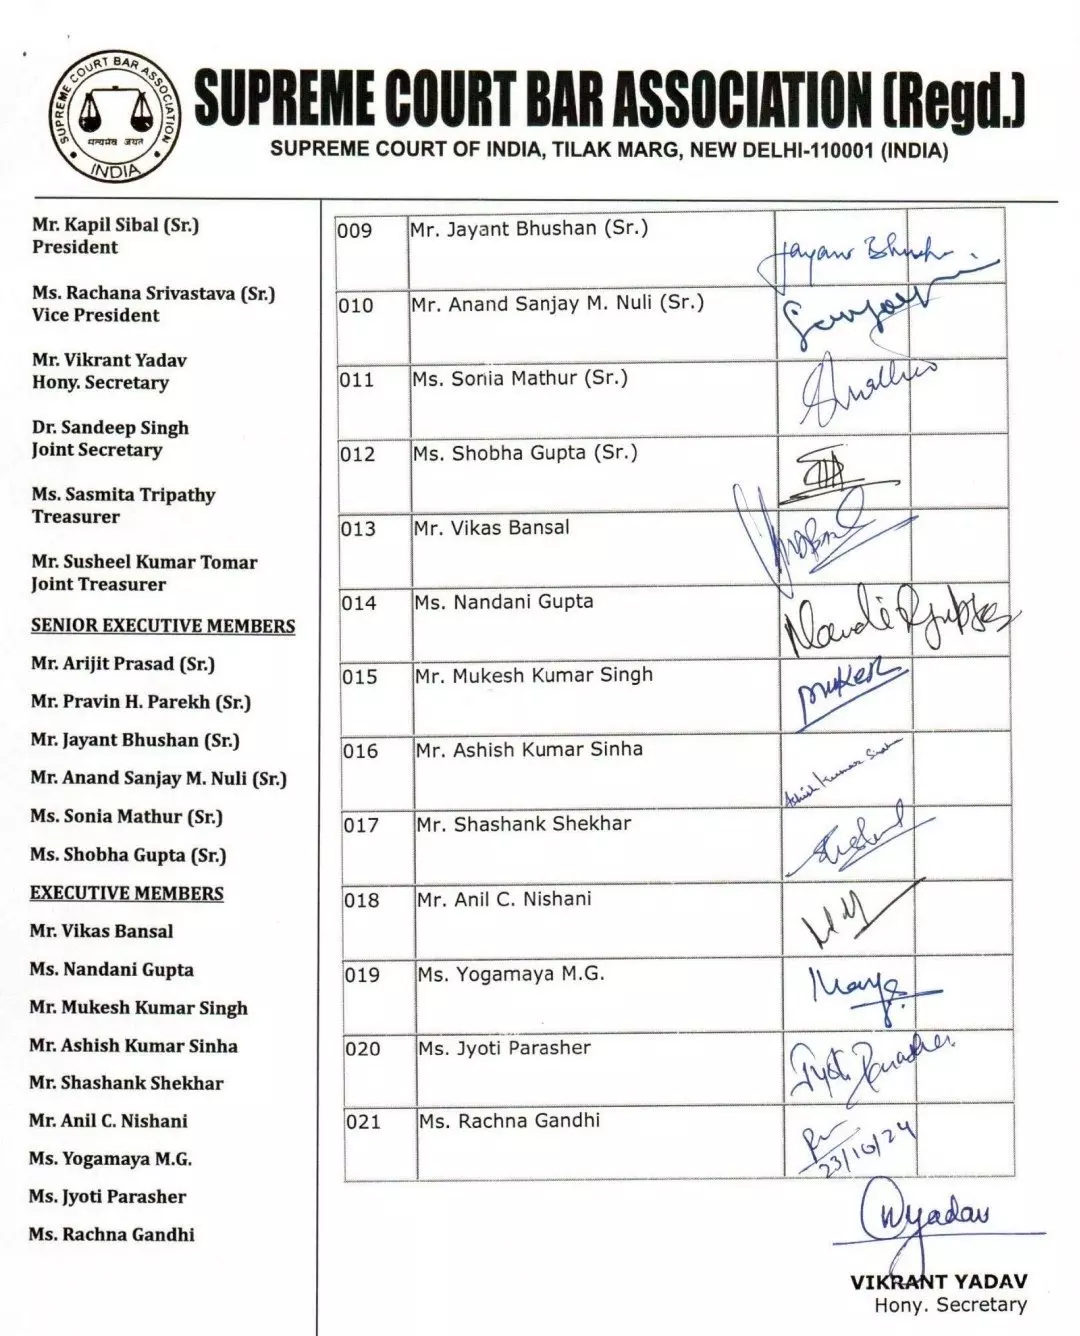 SUPREME COURT BAR ASSOCIATION
INDIA
SUPREME COURT BAR ASSOCIATION (Regd.)
SUPREME COURT OF INDIA, TILAK MARG, NEW DELHI-110001 (INDIA)
Mr. Kapil Sibal (Sr.)
President
Ms. Rachana Srivastava (Sr.)
Vice President
Mr. Vikrant Yadav
Hony. Secretary
Dr. Sandeep Singh
Joint Secretary
Ms. Sasmita Tripathy
Treasurer
Mr. Susheel Kumar Tomar
Joint Treasurer
SENIOR EXECUTIVE MEMBERS
Mr. Arijit Prasad (Sr.)
Mr. Pravin H. Parekh (Sr.)
Mr. Jayant Bhushan (Sr.)
Mr. Anand Sanjay M. Nuli (Sr.)
Ms. Sonia Mathur (Sr.)
Ms. Shobha Gupta (Sr.)
EXECUTIVE MEMBERS
Mr. Vikas Bansal
Ms. Nandani Gupta
Mr. Mukesh Kumar Singh
Mr. Ashish Kumar Sinha
Mr. Shashank Shekhar
Mr. Anil C. Nishani
Ms. Yogamaya M.G.
Ms. Jyoti Parasher
Ms. Rachna Gandhi
009 Mr. Jayant Bhushan (Sr.)
010 Mr. Anand Sanjay M. Nuli (Sr.)
011 Ms. Sonia Mathur (Sr.)
012 Ms. Shobha Gupta (Sr.)
013 Mr. Vikas Bansal
014 Ms. Nandani Gupta
015 Mr. Mukesh Kumar Singh Mukesh
016 Mr. Ashish Kumar Sinha Ashish Kumar Sinha
017 Mr. Shashank Shekhar
018 Mr. Anil C. Nishani
019 Ms. Yogamaya M.G.
020 Ms. Jyoti Parasher Jyoti Parasher
021 Ms. Rachna Gandhi
23/10/24
VIKRANT YADAV
Hony. Secretary